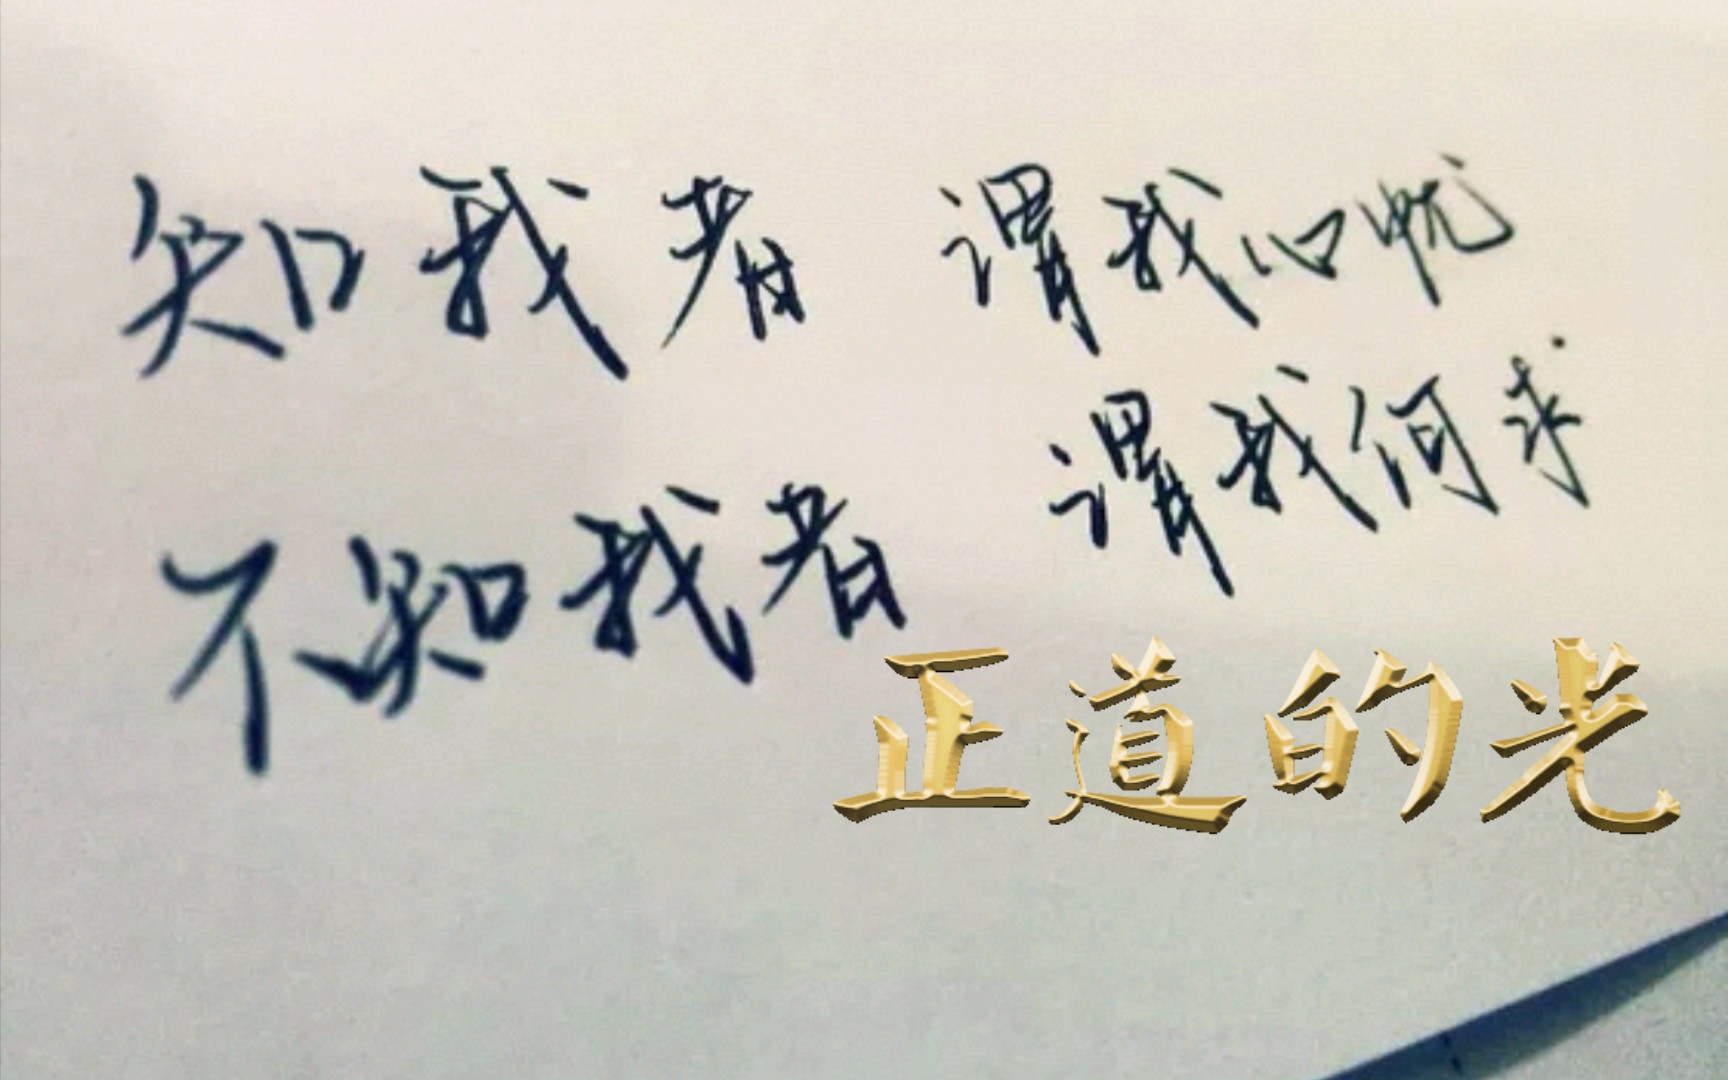 知我者 谓我心忧
不知我者 谓我何求
正道的光